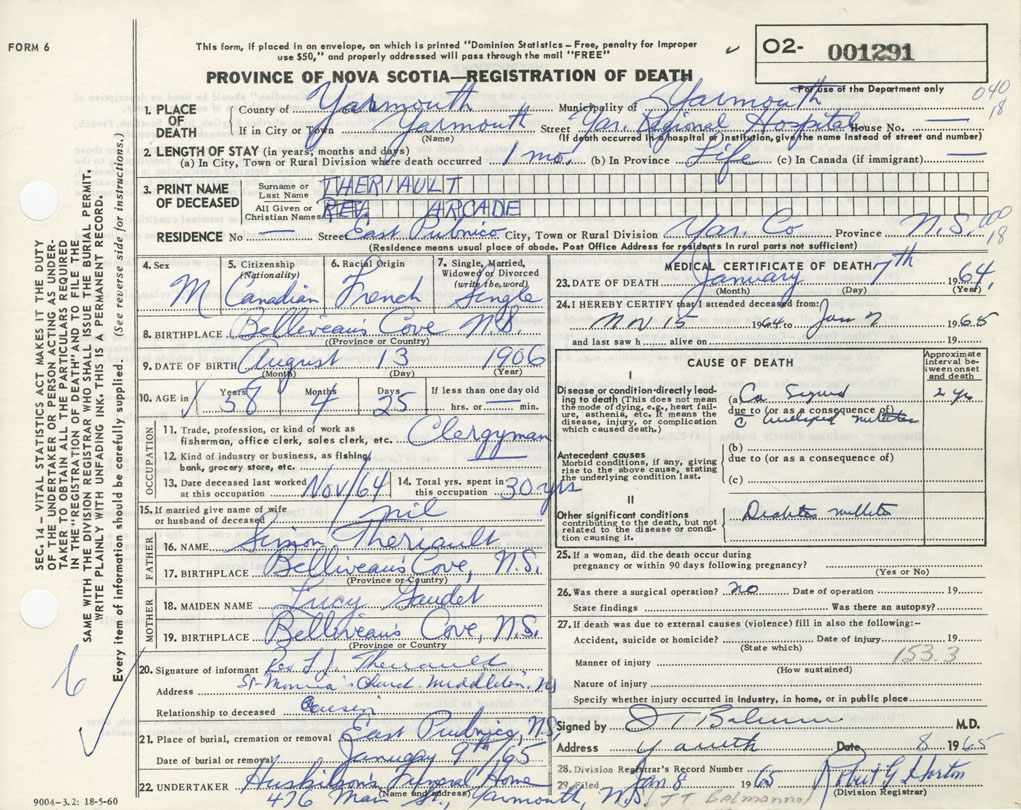 FORM 6
This form, if placed in an envelope, on which is printed "Dominion Statistics – Free, penalty for improper
use $50," and properly addressed will pass through the mail "FREE"
PROVINCE OF NOVA SCOTIA—REGISTRATION OF DEATH
O2- 001291
For use of the Department only
040
18
1. PLACE OF DEATH
County of Yarmouth Municipality of Yarmouth
If in City or Town Yarmouth (Name) Street Yar. Regional Hospital House No. —
(If death occurred in a hospital or institution, give the name instead of street and number)
2. LENGTH OF STAY (in years, months and days)
(a) In City, Town or Rural Division where death occurred 1 mo. (b) In Province Life (c) In Canada (if immigrant) —
3. PRINT NAME OF DECEASED
Surname or Last Name THERIAULT
All Given or Christian Names REV. ARCADE
RESIDENCE No — Street East Pubnico City, Town or Rural Division Yar. Co Province N.S.
00
18
(Residence means usual place of abode. Post Office Address for residents in rural parts not sufficient)
4. Sex M
5. Citizenship (Nationality) Canadian
6. Racial Origin French
7. Single, Married, Widowed or Divorced (write the word) Single
8. BIRTHPLACE Belliveau's Cove N.S.
(Province or Country)
9. DATE OF BIRTH August 13 1906
(Month) (Day) (Year)
10. AGE in Years 58 Months 4 Days 25 If less than one day old
hrs. or — min.
OCCUPATION
11. Trade, profession, or kind of work as
fisherman, office clerk, sales clerk, etc. Clergyman
12. Kind of industry or business, as fishing,
bank, grocery store, etc. —
13. Date deceased last worked at this occupation Nov/64
14. Total yrs. spent in this occupation 30 yrs
15. If married give name of wife or husband of deceased nil
FATHER
16. NAME Simon Theriault
17. BIRTHPLACE Belliveau's Cove, N.S.
(Province or Country)
MOTHER
18. MAIDEN NAME Lucy Gaudet
19. BIRTHPLACE Belliveau's Cove, N.S.
(Province or Country)
20. Signature of informant Rev L. J. Theriault
Address St-Monica's Church Middleton, NS
Relationship to deceased Cousin
21. Place of burial, cremation or removal East Pubnico, N.S.
Date of burial or removal January 9th/65
22. UNDERTAKER Funeral Home
(Name and address)
476 Main St., Yarmouth, N.S.
MEDICAL CERTIFICATE OF DEATH
23. DATE OF DEATH January 7th 1964
(Month) (Day) (Year)
24. I HEREBY CERTIFY that I attended deceased from:
Nov 15 1964 to Jan 7 1965
and last saw h alive on 19
CAUSE OF DEATH
Approximate interval between onset and death
I
Disease condition directly leading to death (This does not mean the mode of dying, e.g., heart failure, asthenia, etc. It means the disease, injury, or complication which caused death.)
(a) Ca 2 yrs
due to (or as a consequence of)
Antecedent causes
Morbid conditions, if any, giving rise to the above cause, stating the underlying condition last.
(b)
due to (or as a consequence of)
(c)
II
Other significant conditions
contributing to the death, but not related to the disease or condition causing it.
Diabetes
25. If a woman, did the death occur during
pregnancy or within 90 days following pregnancy?
(Yes or No)
26. Was there a surgical operation? no Date of operation 19
State findings Was there an autopsy?
27. If death was due to external causes (violence) fill in also the following:–
Accident, suicide or homicide? Date of injury 19
(State which)
Manner of injury 153.3
(How sustained)
Nature of injury
Specify whether injury occurred in industry, in home, or in public place
Signed by M.D.
Address Date 8 1965
28. Division Registrar's Record Number
29. Filed Jan 8 1965 Robert G Horton
(Division Registrar)
(J T Balmanno)
SEC. 14 – VITAL STATISTICS ACT MAKES IT THE DUTY
OF THE UNDERTAKER OR PERSON ACTING AS UNDER-
TAKER TO OBTAIN ALL THE PARTICULARS REQUIRED
IN THE "REGISTRATION OF DEATH" AND TO FILE THE
SAME WITH THE DIVISION REGISTRAR WHO SHALL ISSUE THE BURIAL PERMIT.
WRITE PLAINLY WITH UNFADING INK. THIS IS A PERMANENT RECORD.
Every item of information should be carefully supplied. (See reverse side for instructions.)
9004-3.2: 18-5-60